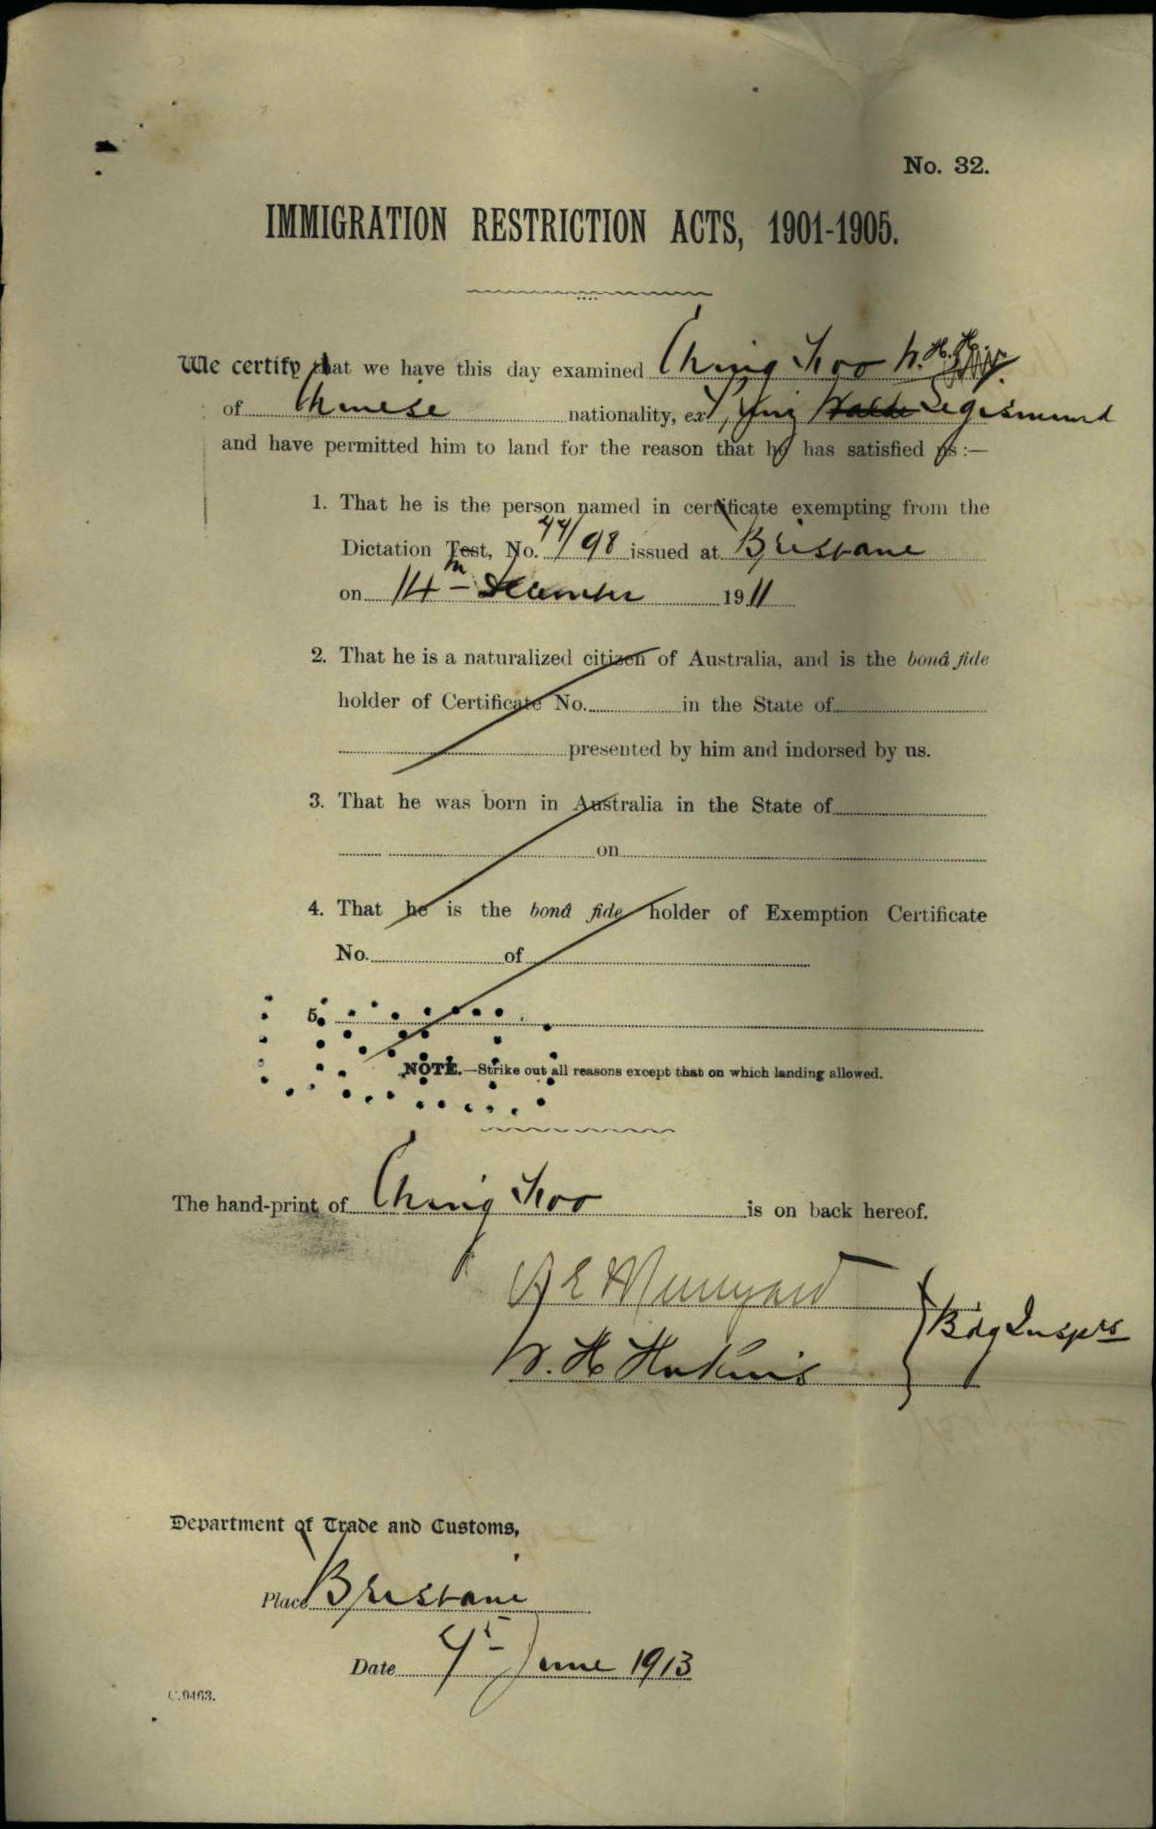 No. 32.
IMMIGRATION RESTRICTION ACTS, 1901-1905.
We certify that we have this day examined Ching Foo W. H. H.
of Chinese nationality, ex Prinz Walde Segismund
and have permitted him to land for the reason that he has satisfied us :—
1. That he is the person named in certificate exempting from the
Dictation Test, No. 44/98 issued at Brisbane
on 14th December 1911
2. That he is a naturalized citizen of Australia, and is the bonâ fide
holder of Certificate No. in the State of
presented by him and indorsed by us.
3. That he was born in Australia in the State of
on
4. That he is the bonâ fide holder of Exemption Certificate
No. of
5.
NOTE.—Strike out all reasons except that on which landing allowed.
The hand-print of Ching Foo is on back hereof.
A E Munyard
W. H. Hokins
Bdg Insprs
Department of Trade and Customs,
Place Brisbane
Date June 1913
C.9463.